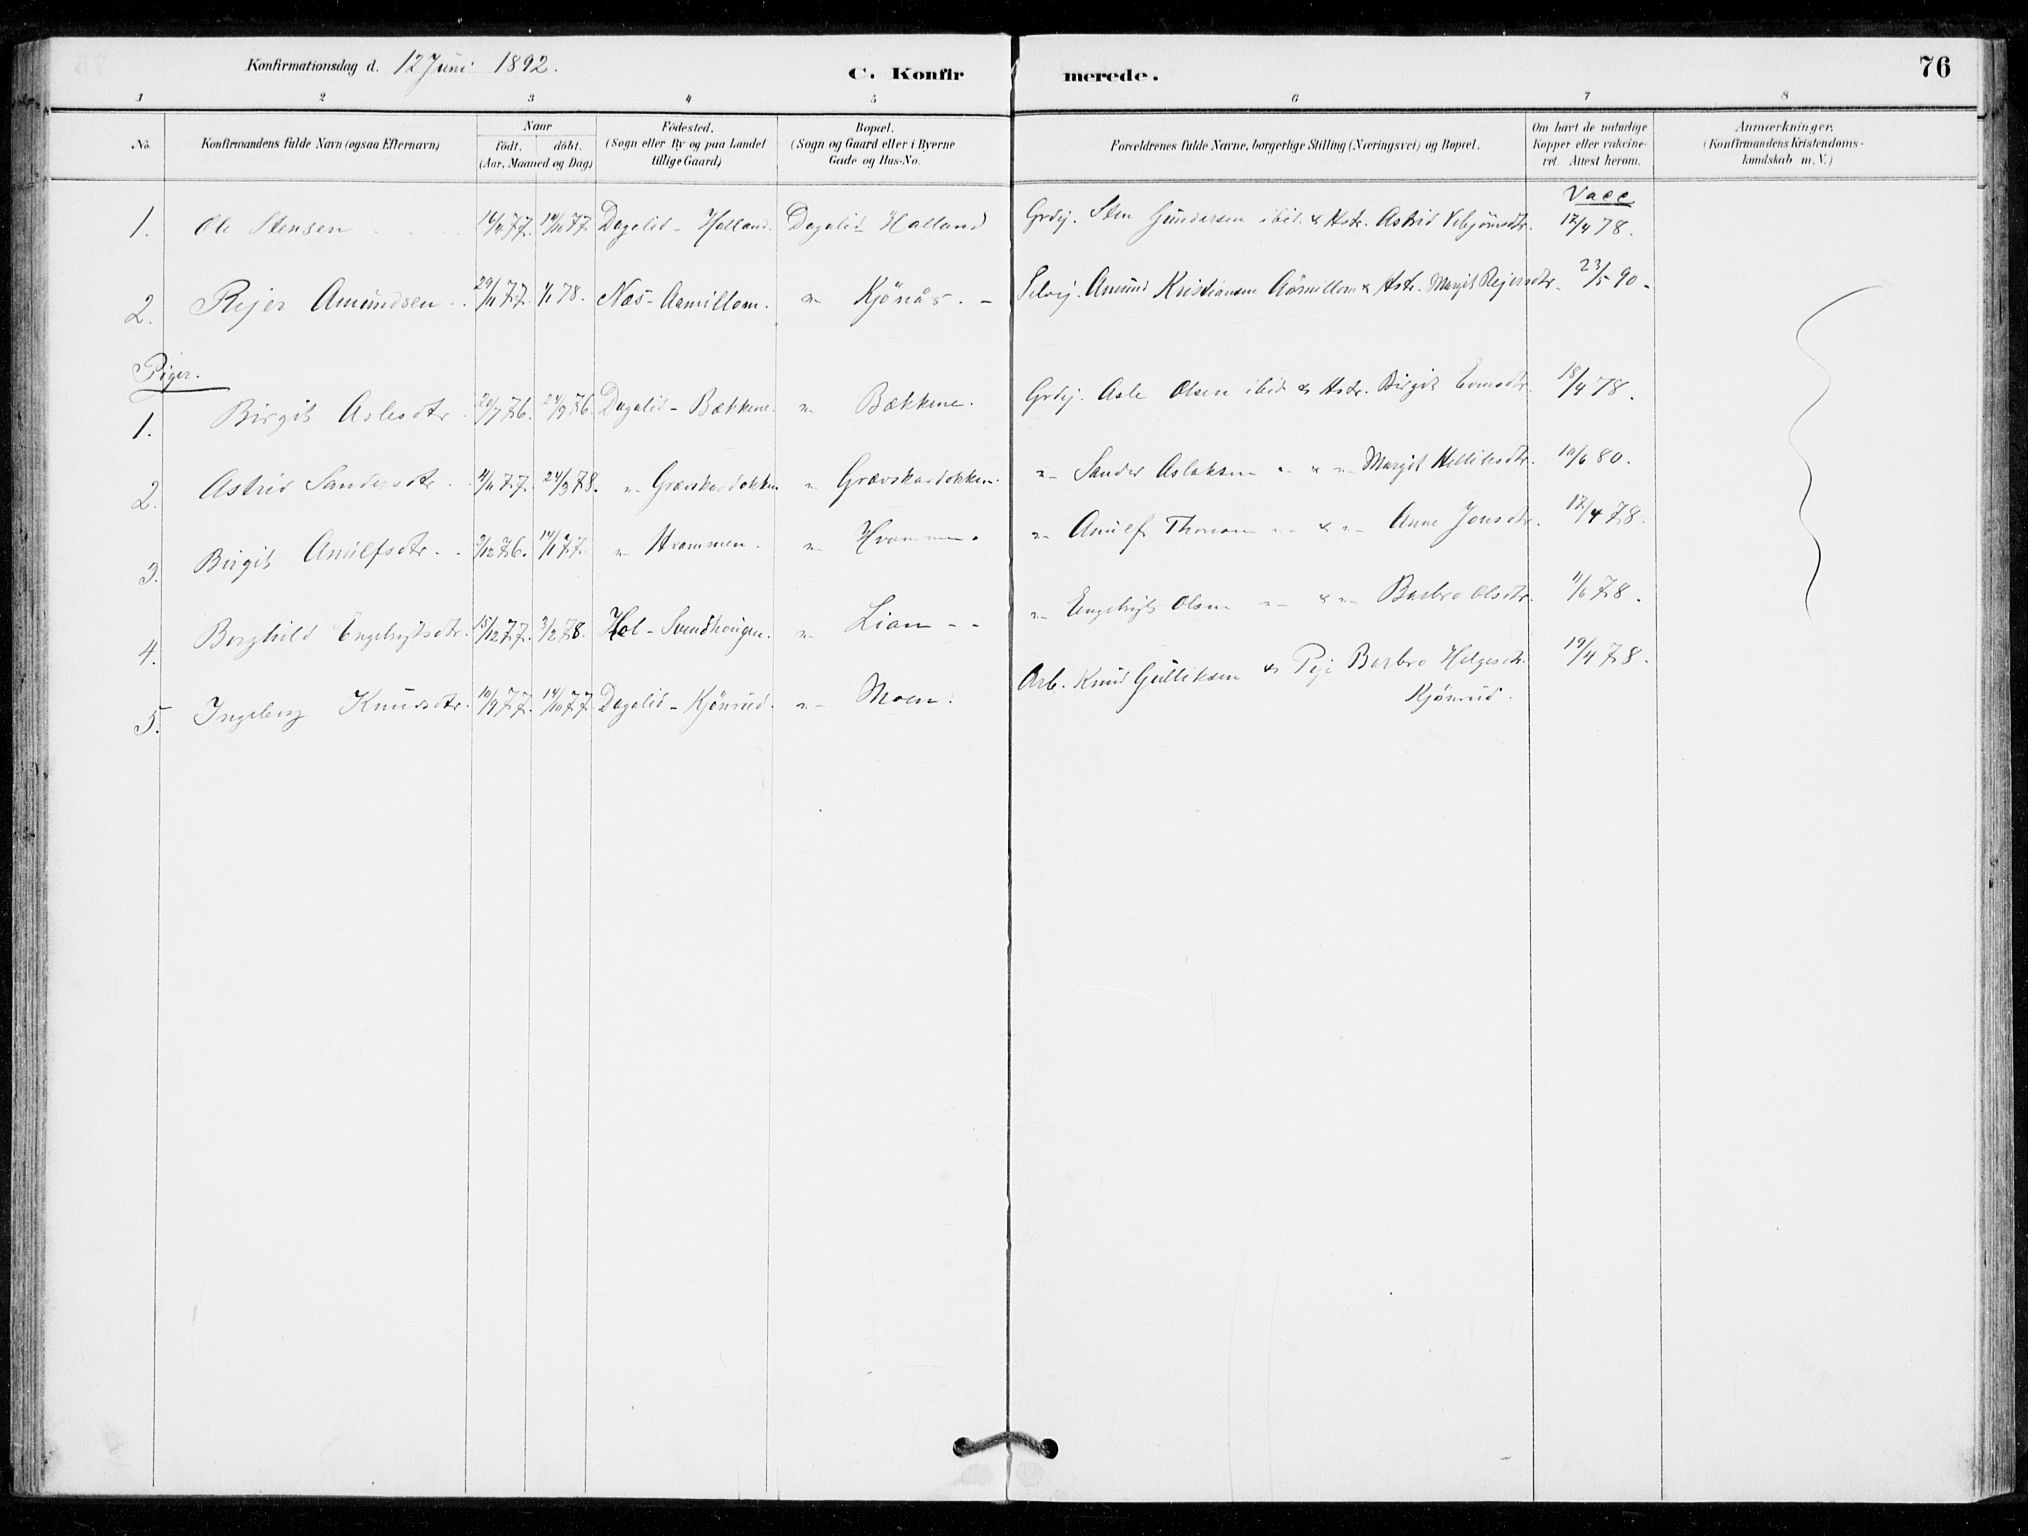 Konfirmationsdag d. 12 Juni 1892.
C. Konfir merede. 76
1 2 3 4 5 6 7 8
No.
Konfirmandens fulde Navn (ogsaa Efternavn)
Naar
födt. döbt.
(Aar, Maaned og Dag)
Födested.
(Sogn eller By og paa Landet
tillige Gaard)
Bopæl.
(Sogn og Gaard eller i Byerne
Gade og Hus-No.
Forældrenes fulde Navne, borgerlige Stilling (Næringsvei) og Bopæl.
Om havt de naturlige
Kopper eller vaccine-
ret. Attest herom.
Anmærkninger.
(Konfirmandens Kristendoms-
kundskab m. V.)
Vacc
1. Ole Stensen 77. 14/10 77 Dagalid - Halland. Dagalid - Halland Grdej. Sten Gundersen ibid. & Hstr. Astrid Vebjörnsdtr. 12/4 78.
2. Rejer Amundsen 29/11 77. 1/1 78. Næs - Aamillom. " Kjönås. Selvej. Amund Kristiansen Aamillom & Hstr. Margit Rejersdtr. 23/5 90.
Piger.
1. Birgit Aslesdtr. 20/7 76. 24/9 76. Dagalid - Bækkene. " Bækkene. Grdej. Asle Olsen ibid & Hstr. Birgit Evensdtr. 18/4 78.
2. Astrid Sandersdtr. 4/11 77. 24/3 78. " Grævskardokken " Grævskardokken. " Sander Aslaksen " & " Margit Helliksdtr. 10/6 80.
3. Birgit Arnulfsdtr. 3/12 76. 14/1 77. " Hvammen. " Hvammen. " Arnulf " & " Anne Jonsdtr. 12/4 78.
4. Borghild Engebrigtsdtr. 15/12 77. 3/2 78. Hol - Svendhougen. " Lian " Engebrigt Olsen " & " Barbro Olsdtr. 11/6 78.
5. Ingeborg Knudsdtr. 10/9 77. 14/10 77. Dagalid - Kjönrud. " Moen. Arb. Knud Gulliksen & Pige Barbro Helgesdtr. 19/4 78.
Kjönrud.